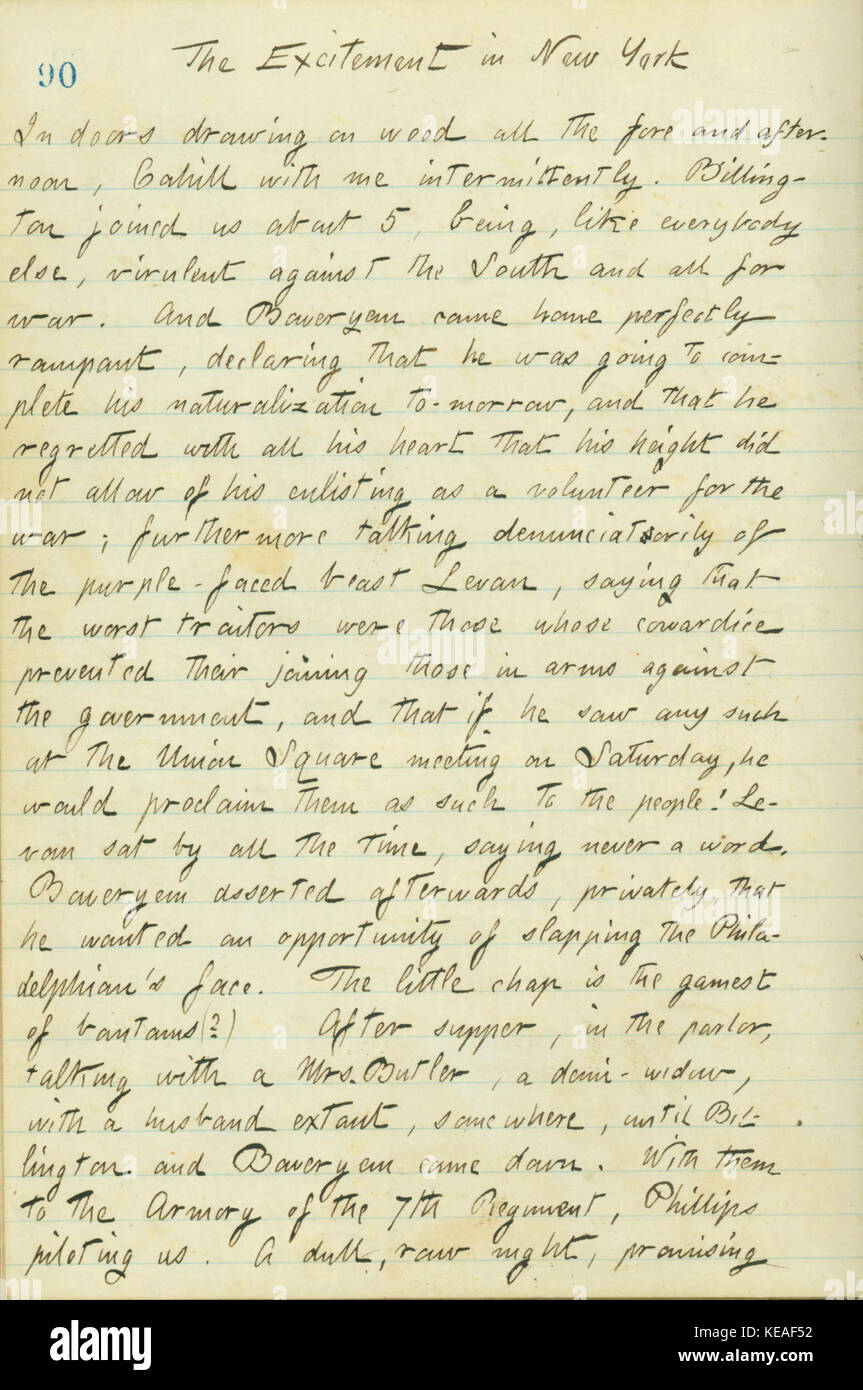 90
The Excitement in New York
In doors drawing on wood all the fore and after-
noon, Cahill with me intermittently. Billing-
ton joined us about 5, being, like everybody
else, virulent against the South and all for
war. And Boweryem came home perfectly
rampant, declaring that he was going to com-
plete his naturalization to-morrow, and that he
regretted with all his heart that his height did
not allow of his enlisting as a volunteer for the
war; furthermore talking denunciatorily of
the purple-faced beast Levan, saying that
the worst traitors were those whose cowardice
prevented their joining those in arms against
the government, and that if he saw any such
at the Union Square meeting on Saturday, he
would proclaim them as such to the people! Le-
van sat by all the time, saying never a word.
Boweryem asserted afterwards, privately, that
he wanted an opportunity of slapping the Phila-
delphian's face. The little chap is the gamest
of bantams(?) After supper, in the parlor,
talking with a Mrs. Butler, a demi-widow,
with a husband extant, somewhere, until Bil-
lington and Boweryem came down. With them
to the Armory of the 7th Regiment, Phillips
piloting us. A dull, raw night, promising
alamy
Image ID: KEAF52
www.alamy.com